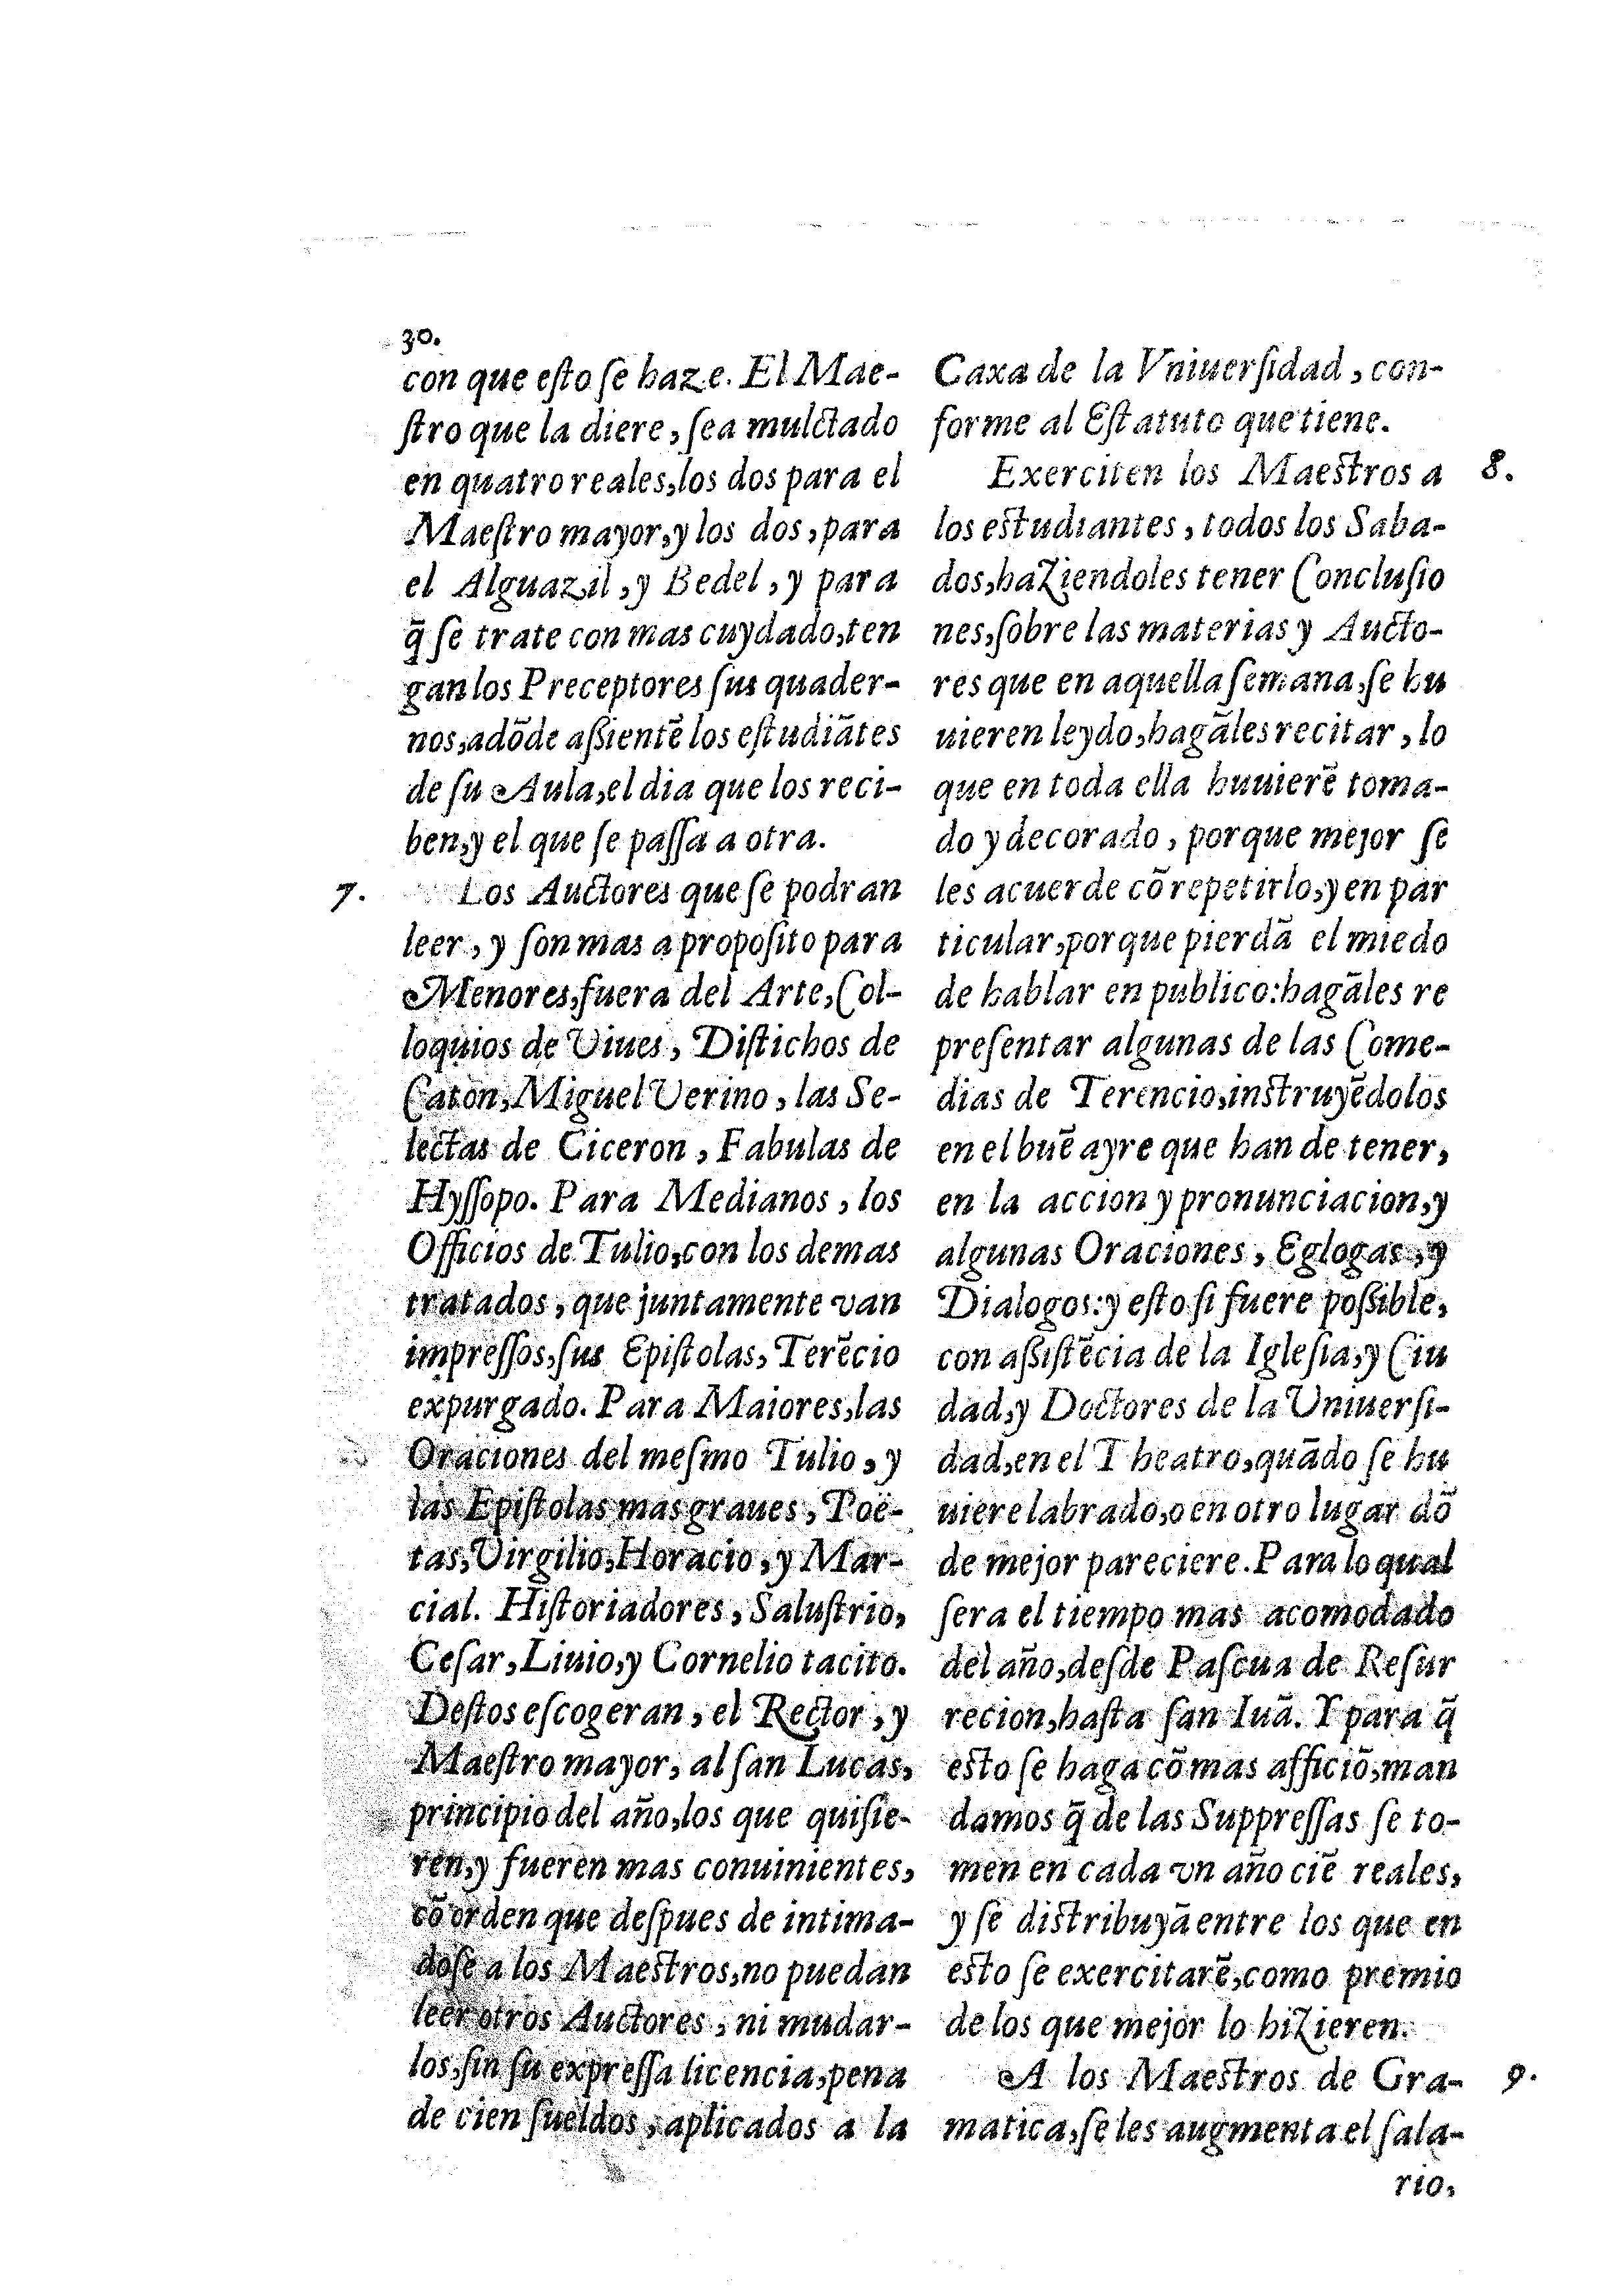 30.
con que eſto ſe haze. El Mae-
ſtro que la diere, ſea mulctado
en quatro reales, los dos para el
Maeſtro mayor, y los dos, para
el Alguazil, y Bedel, y para
q̃ ſe trate con mas cuydado, ten
gan los Preceptores ſus quader-
nos, adõde aſsientẽ los eſtudiãtes
de ſu Aula, el dia que los reci-
ben, y el que ſe paſſa a otra.
7.
Los Auctores que ſe podran
leer, y ſon mas a propoſito para
Menores, fuera del Arte, Col-
loquios de Viues, Diſtichos de
Caton, Miguel Verino, las Se-
lectas de Ciceron, Fabulas de
Hyſſopo. Para Medianos, los
Officios de Tulio, con los demas
tratados, que juntamente van
impreſſos, ſus Epiſtolas, Terẽcio
expurgado. Para Maiores, las
Oraciones del meſmo Tulio, y
las Epiſtolas mas graues, Poë-
tas, Virgilio, Horacio, y Mar-
cial. Hiſtoriadores, Saluſtrio,
Ceſar, Liuio, y Cornelio tacito.
Deſtos eſcogeran, el Rector, y
Maeſtro mayor, al ſan Lucas,
principio del año, los que quiſie-
ren, y fueren mas conuinientes,
cõ orden que deſpues de intima-
doſe a los Maeſtros, no puedan
leer otros Auctores, ni mudar-
los, ſin ſu expreſſa licencia, pena
de cien ſueldos, aplicados a la
Caxa de la Vniuerſidad, con-
forme al Eſtatuto que tiene.
Exerciten los Maeſtros a
8.
los eſtudiantes, todos los Saba-
dos, haziendoles tener Concluſio
nes, ſobre las materias y Aucto-
res que en aquella ſemana, ſe hu
uieren leydo, hagãles recitar, lo
que en toda ella huuierẽ toma-
do y decorado, porque mejor ſe
les acuerde cõ repetirlo, y en par
ticular, porque pierdã el miedo
de hablar en publico: hagãles re
preſentar algunas de las Come-
dias de Terencio, inſtruyẽdolos
en el buẽ ayre que han de tener,
en la accion y pronunciacion, y
algunas Oraciones, Eglogas, y
Dialogos: y eſto ſi fuere poſsible,
con aſsiſtẽcia de la Igleſia, y Ciu
dad, y Doctores de la Vniuerſi-
dad, en el Theatro, quãdo ſe hu
uiere labrado, o en otro lugar dõ
de mejor pareciere. Para lo qual
ſera el tiempo mas acomodado
del año, deſde Paſcua de Reſur
recion, haſta ſan Iuã. Y para q̃
eſto ſe haga cõ mas afficiõ, man
damos q̃ de las Suppreſſas ſe to-
men en cada vn año ciẽ reales,
y ſe diſtribuyã entre los que en
eſto ſe exercitarẽ, como premio
de los que mejor lo hizieren.
A los Maeſtros de Gra-
9.
matica, ſe les augmenta el ſala-
rio,